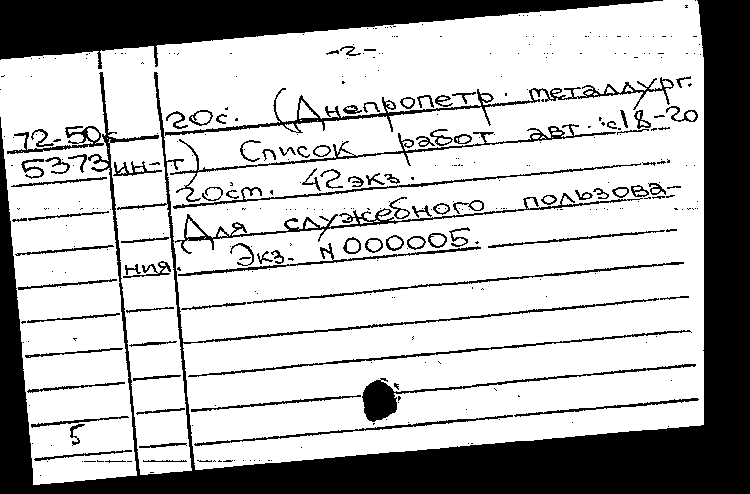 -2-
72-50с 20с. (Днепропетр. металлург.
5373 ин-т) Список работ авт.: с 18-20
20ст. 42экз.
Для служебного пользова-
ния. Экз. N 000005.
5